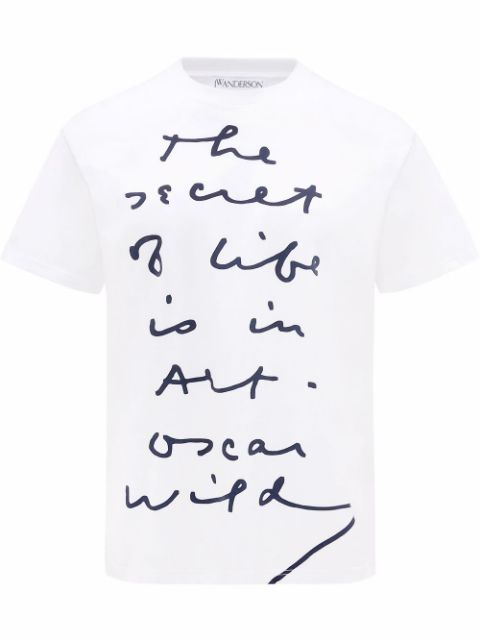 JWANDERSON
the
secret
of life
is in
Art.
oscar
wilde